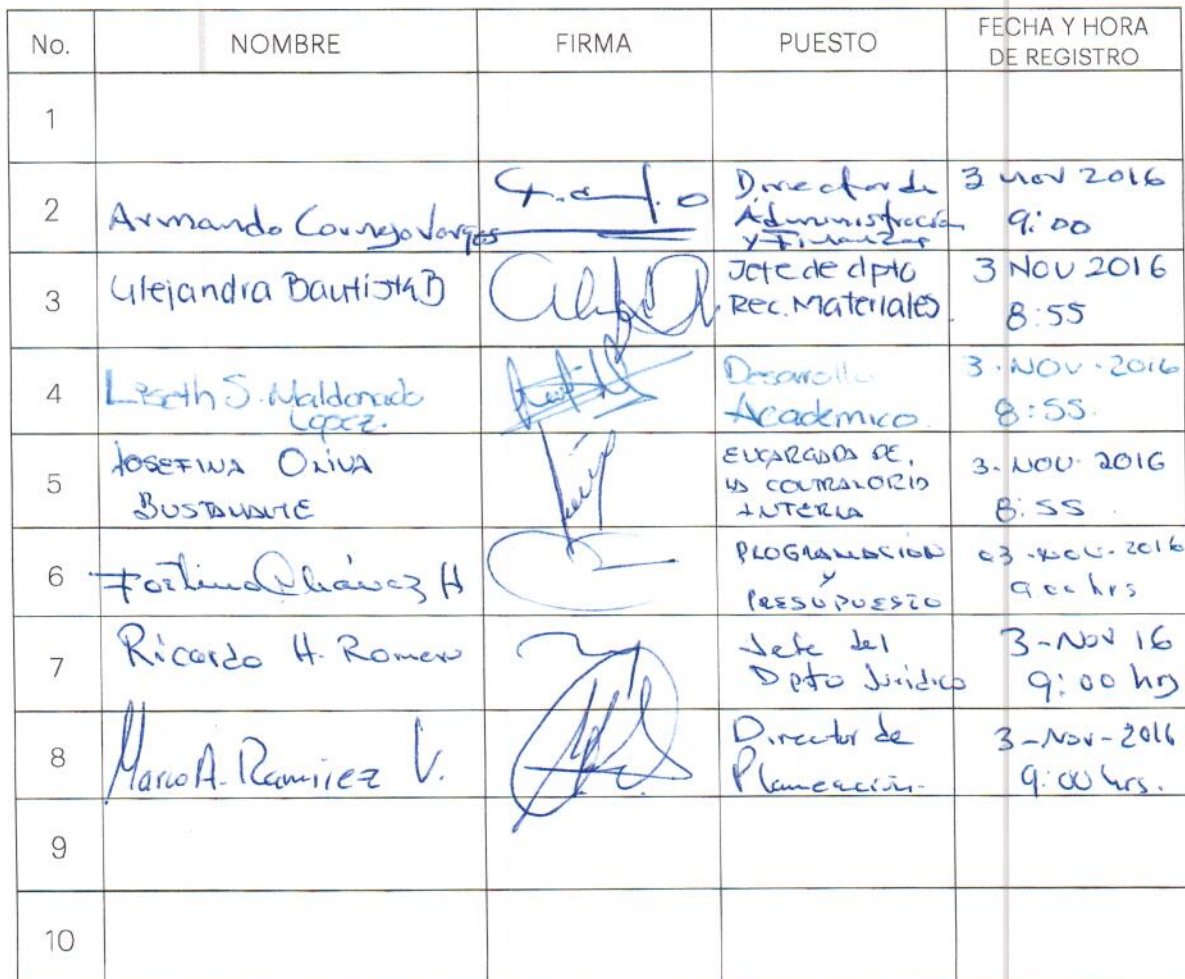 No. NOMBRE FIRMA PUESTO FECHA Y HORA
DE REGISTRO
1
2 Armando Cornejo Vargas Director de Administración y Finanzas 3 nov 2016 9:00
3 Alejandra Bautista B Jefe de dpto Rec. Materiales 3 NOV 2016 8:55
4 Lizeth S. Maldonado Lopez. Desarrollo Academico. 3-NOV-2016 8:55.
5 JOSEFINA OLIVA BUSTAMANTE ENCARGADA DE LA CONTRALORIA INTERNA 3-NOV-2016 8:55
6 Fortino Chávez H PROGRAMACION Y PRESUPUESTO 03-NOV-2016 9:00 hrs
7 Ricardo H. Romero Jefe del Dpto Jurídico 3-NOV 16 9:00 hrs
8 Marco A. Ramirez V. Director de Planeación. 3-Nov-2016 9:00 hrs.
9
10